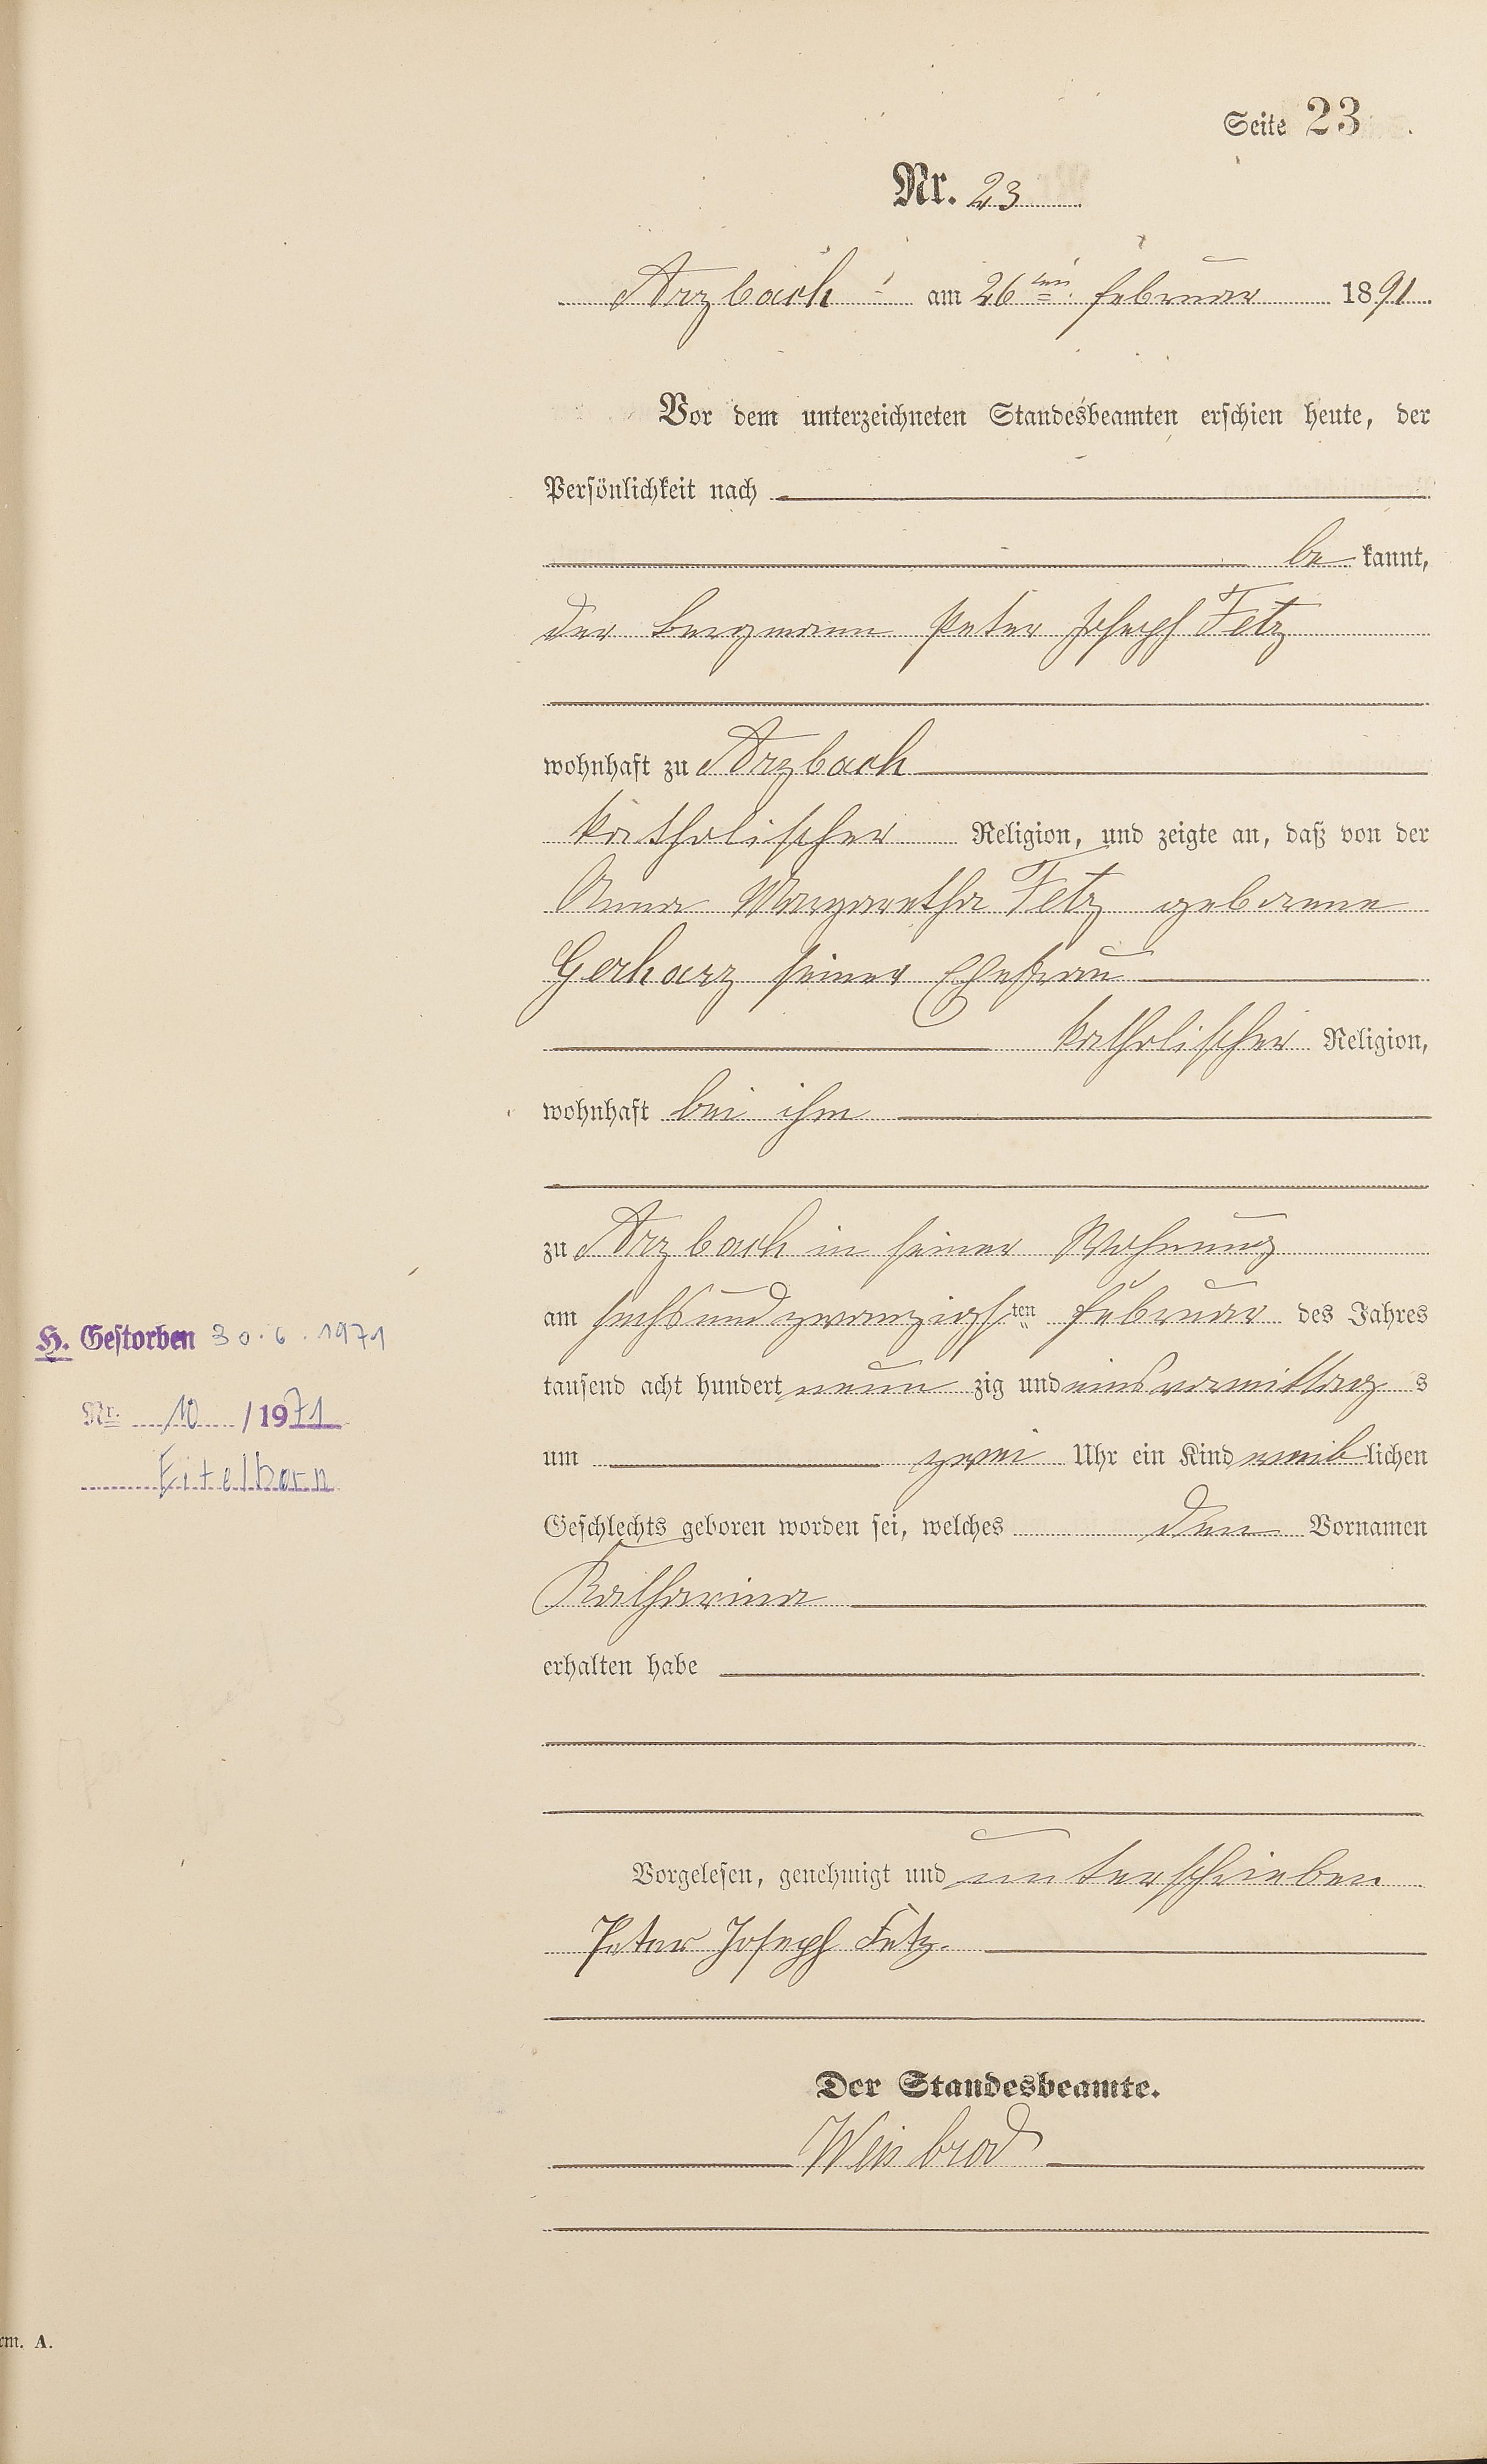 Seite 23
Nr. 23
Arzbach am 26ten Februar 1891
Vor dem unterzeichneten Standesbeamten erschien heute, der
Persönlichkeit nach
be kannt,
der Bergmann Peter Joseph Fetz
wohnhaft zu Arzbach
katholischer Religion, und zeigte an, daß von der
Anna Margaretha Fetz geborene
Gerharz seiner Ehefrau
katholischer Religion,
wohnhaft bei ihm
zu Arzbach in seiner Wohnung
am sechsundzwanzigsten Februar des Jahres
tausend acht hundert neun zig und eins vormittag s
um zwei Uhr ein Kind weib lichen
Geschlechts geboren worden sei, welches den Vornamen
Katharina
erhalten habe
Vorgelesen, genehmigt und unterschrieben
Peter Joseph Fetz.
Der Standesbeamte.
Weisbrod
H. Gestorben 30.6.1971
Nr. 10 / 1971
Eitelborn
rm. A.